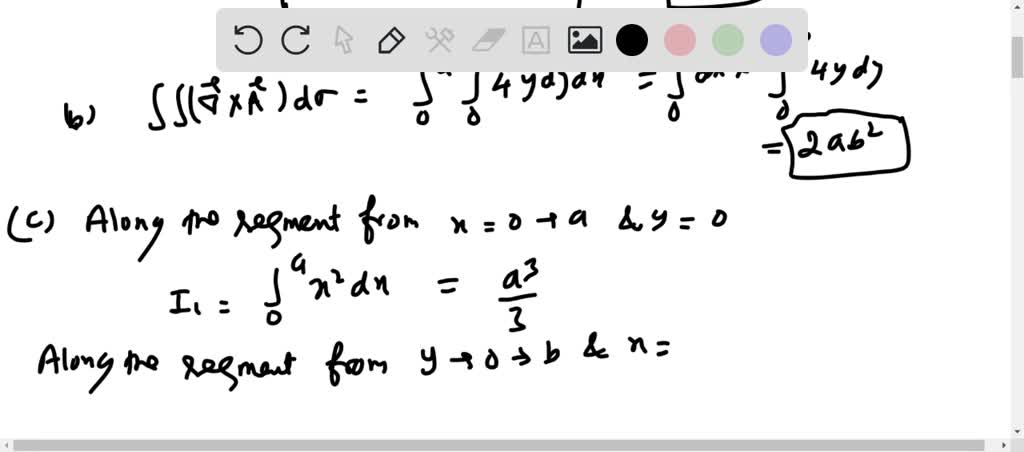 b) ∫∫(∇×A)dσ = ∫₀ ∫₀ 4ydydx = ∫₀ ∫₀ 4ydy
= 2ab²
(c) Along the segment from x = 0 → a & y = 0
I₁ = ∫₀ᵃ x² dx = a³/3
Along the segment from y → 0 → b & x =